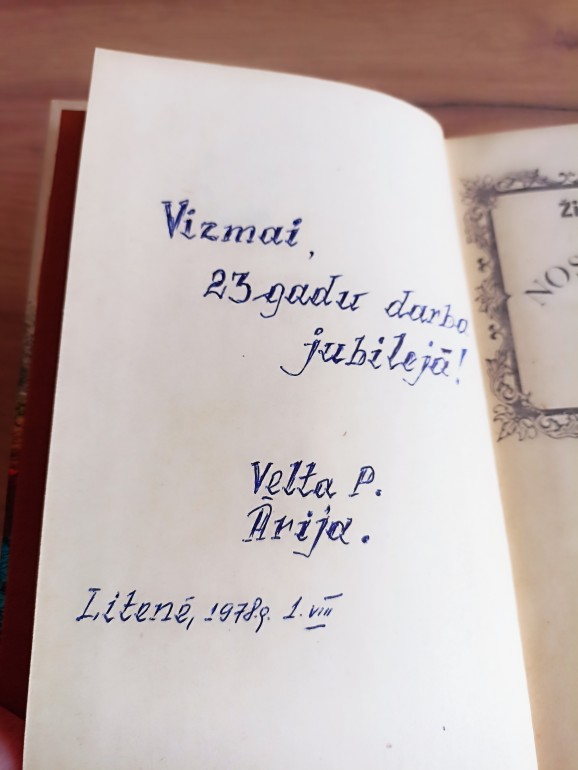 Vizmai,
23 gadu darba
jubilejā!
Velta P.
Ārija.
Litenē, 1978.g. 1.VIII
Ži
NOS